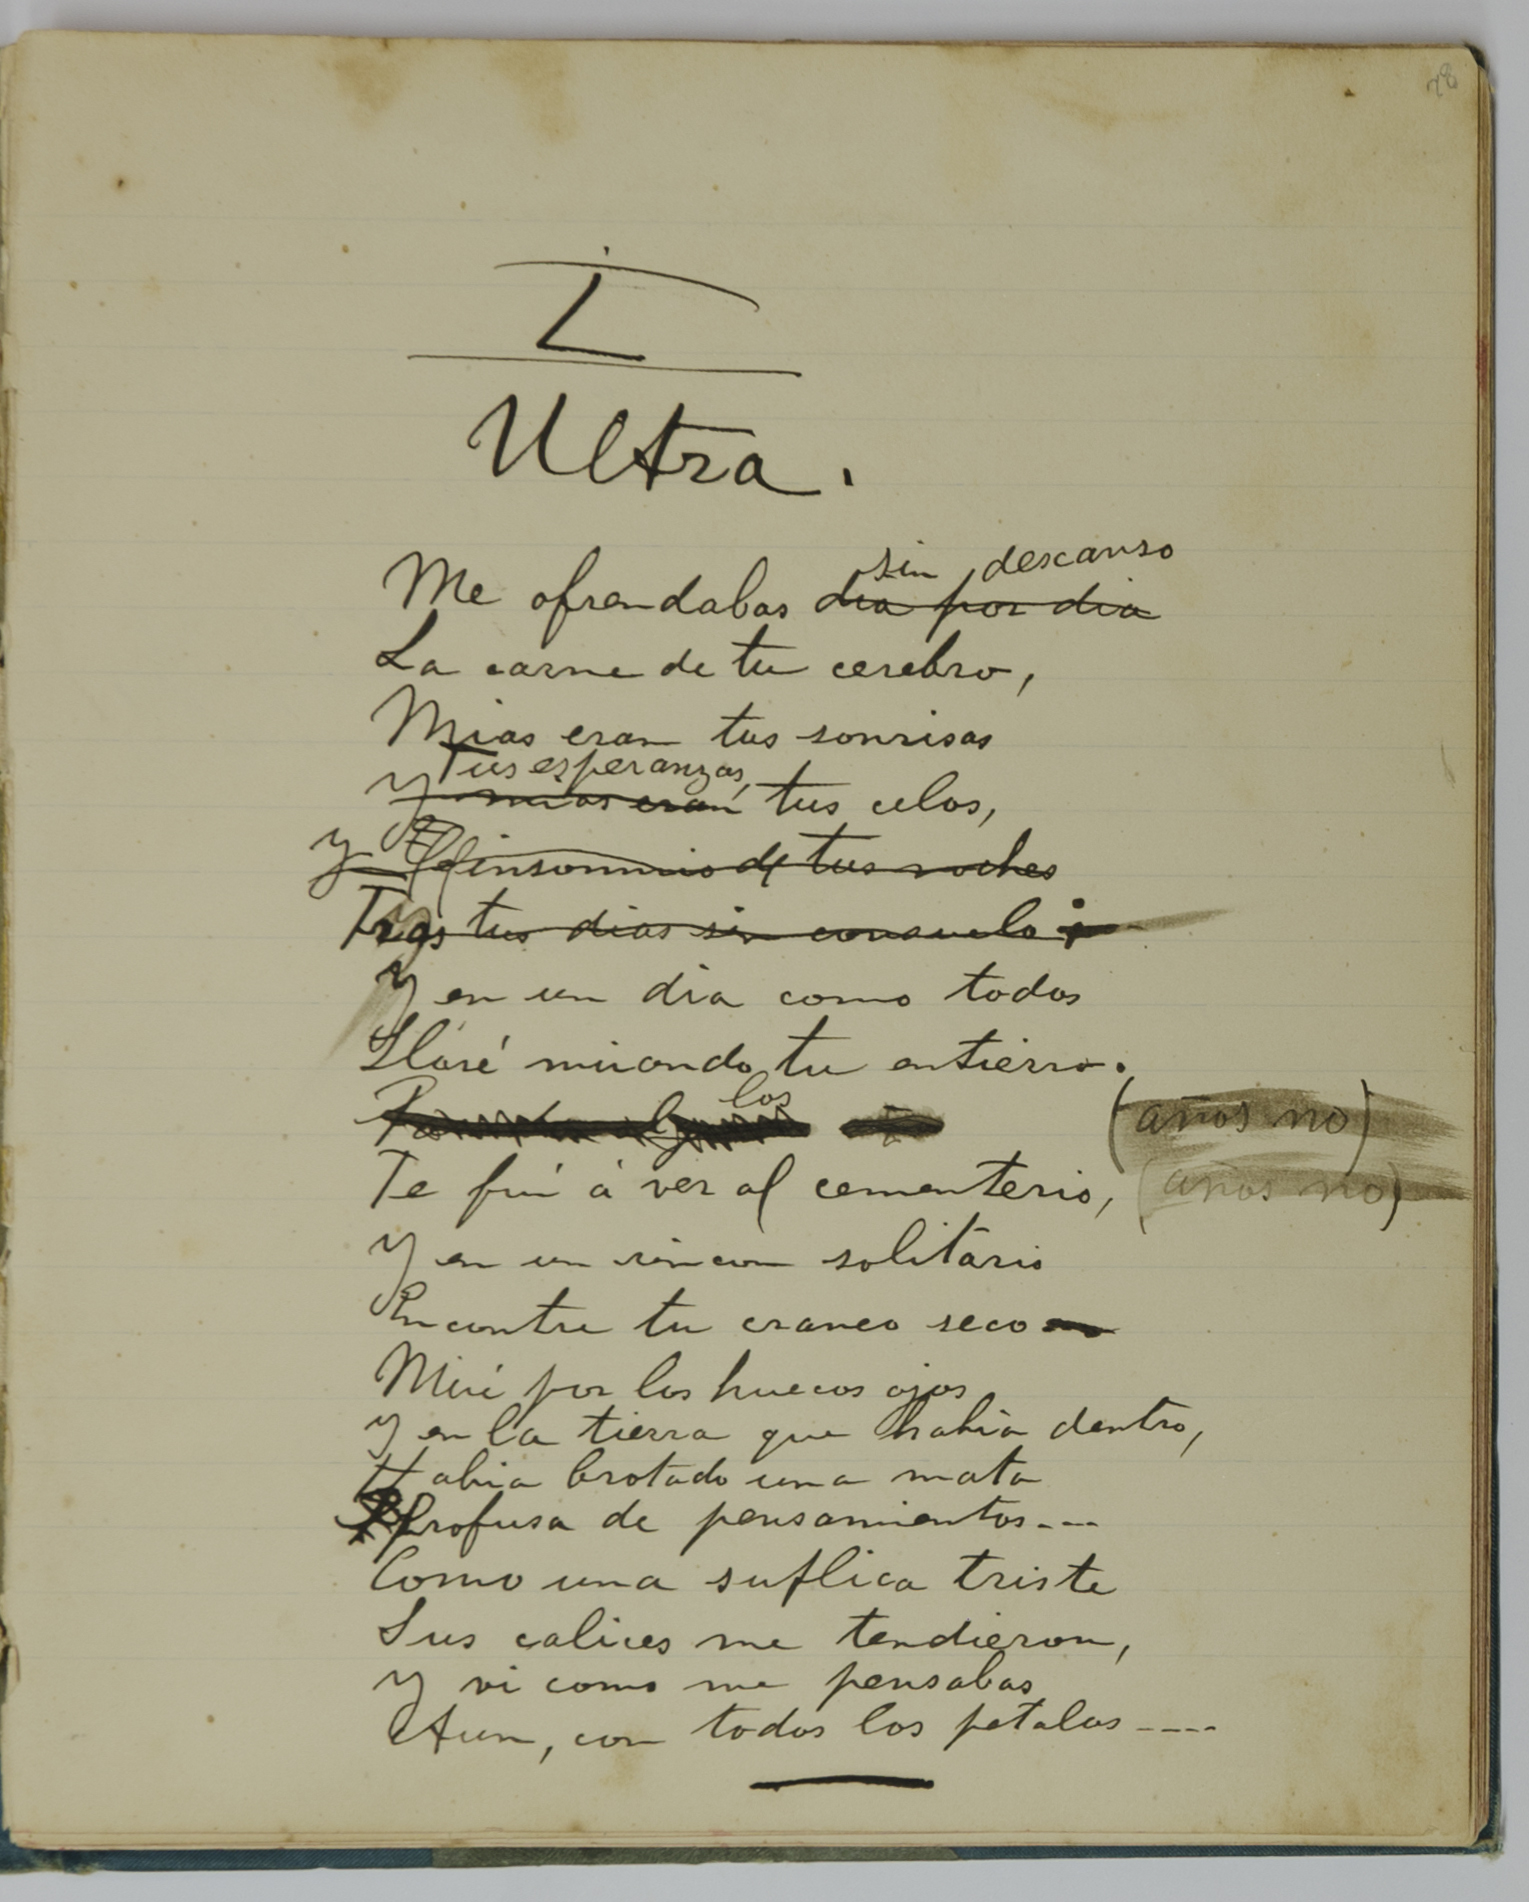 78
I
Ultra.
sin descanso
Me ofrendabas dia por dia
La carne de tu cerebro,
Mias eran tus sonrisas
Tus esperanzas,
Y mias eran tus celos,
y El insomnio de tus noches
Tras tus dias sin consuelo;
Y en un dia como todos
Lloré mirando tu entierro.
los
(años no)
Te fuí á ver al cementerio, (años no)
Y en un rincon solitario
Encontre tu craneo seco
Miré por los huecos ojos
Y en la tierra que habia dentro,
Habia brotado una mata
Profusa de pensamientos....
Como una suplica triste
Sus calices me tendieron,
Y vi como me pensabas
Aun, con todos los petalos....